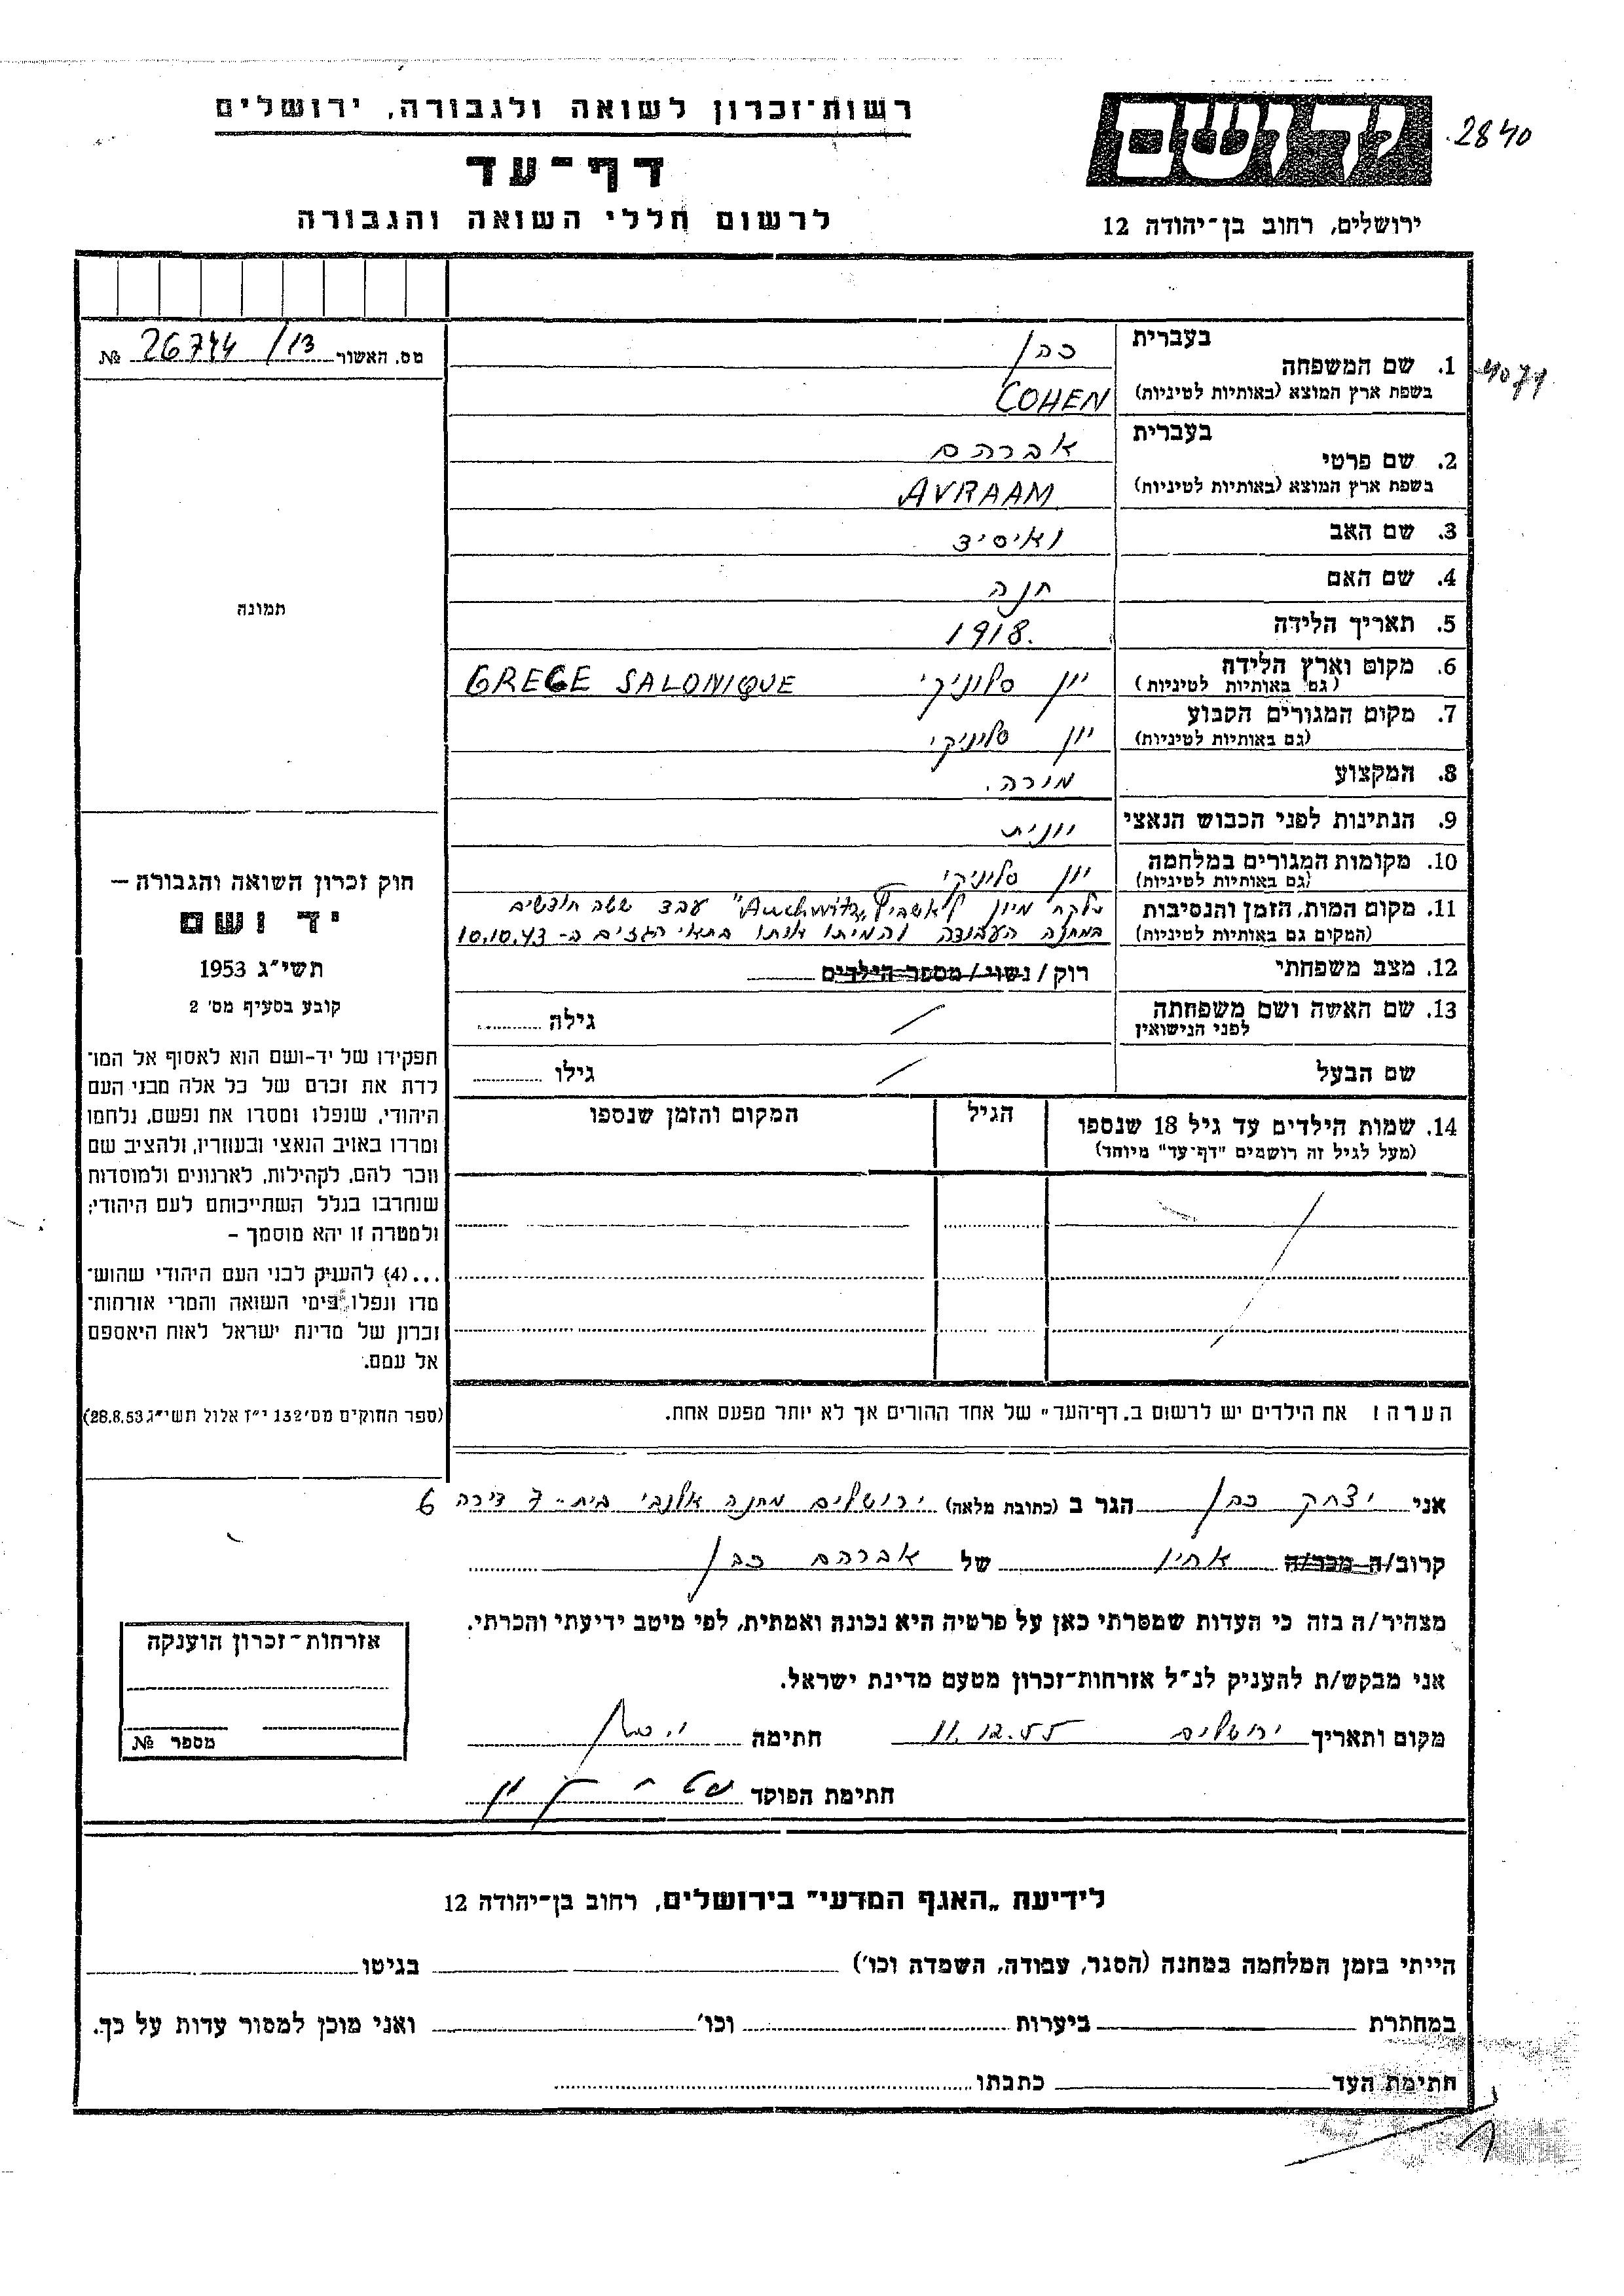 רשות־זכרון לשואה ולגבורה, ירושלים
דף־עד
לרשום חללי השואה והגבורה
יד ושם
2840
ירושלים, רחוב בן־יהודה 12
מס. האשור 26744/13 №
תמונה
חוק זכרון השואה והגבורה —
יד ושם
תשי"ג 1953
קובע בסעיף מס' 2
תפקידו של יד-ושם הוא לאסוף אל המו־
לדת את זכרם של כל אלה מבני העם
היהודי, שנפלו ומסרו את נפשם, נלחמו
ומרדו באויב הנאצי ובעוזריו, ולהציב שם
וזכר להם, לקהילות, לארגונים ולמוסדות
שנחרבו בגלל השתייכותם לעם היהודי;
ולמטרה זו יהא מוסמך –
...(4) להעניק לבני העם היהודי שהוש־
מדו ונפלו בימי השואה והמרי אזרחות־
זכרון של מדינת ישראל לאות היאספם
אל עמם.
(ספר החוקים מס' 132 י"ז אלול תשי"ג 28.8.53)
בעברית כהן
1. שם המשפחה
בשפת ארץ המוצא (באותיות לטיניות) COHEN
4071
בעברית אברהם
2. שם פרטי
בשפת ארץ המוצא (באותיות לטיניות) AVRAAM
3. שם האב
4. שם האם חנה
5. תאריך הלידה 1918.
6. מקום וארץ הלידה יון סלוניקי GRECE SALONIQUE
(גם באותיות לטיניות)
7. מקום המגורים הקבוע יון סלוניקי
(גם באותיות לטיניות)
8. המקצוע מורה.
9. הנתינות לפני הכבוש הנאצי יונית
10. מקומות המגורים במלחמה יון סלוניקי
(גם באותיות לטיניות)
11. מקום המות, הזמן והנסיבות נלקח מיון לאשביץ "Auchwitz" עבד ששה חודשים
(המקום גם באותיות לטיניות) במחנה העבודה והמיתו אותו בתאי הגזים ב- 10.10.43
12. מצב משפחתי רוק / נשוי / מספר הילדים
13. שם האשה ושם משפחתה / גילה
לפני הנישואין
שם הבעל / גילו
14. שמות הילדים עד גיל 18 שנספו הגיל המקום והזמן שנספו
(מעל לגיל זה רושמים "דף־עד" מיוחד)
הערה: את הילדים יש לרשום ב„דף־העד" של אחד ההורים אך לא יותר מפעם אחת.
אני יצחק כהן הגר ב (כתובת מלאה) ירושלים מחנה אלנבי בית - 7 דירה 6
קרוב/ה מכר/ה אחין של אברהם כהן
מצהיר/ה בזה כי העדות שמסרתי כאן על פרטיה היא נכונה ואמתית, לפי מיטב ידיעתי והכרתי.
אני מבקש/ת להעניק לנ"ל אזרחות־זכרון מטעם מדינת ישראל.
מקום ותאריך ירושלים 11.12.55 חתימה י. כהן
חתימת הפוקד
אזרחות־זכרון הוענקה
מספר №
לידיעת „האגף המדעי" בירושלים, רחוב בן־יהודה 12
הייתי בזמן המלחמה במחנה (הסגר, עבודה, השמדה וכו') בגיטו
במחתרת ביערות וכו' ואני מוכן למסור עדות על כך.
חתימת העד כתבתו